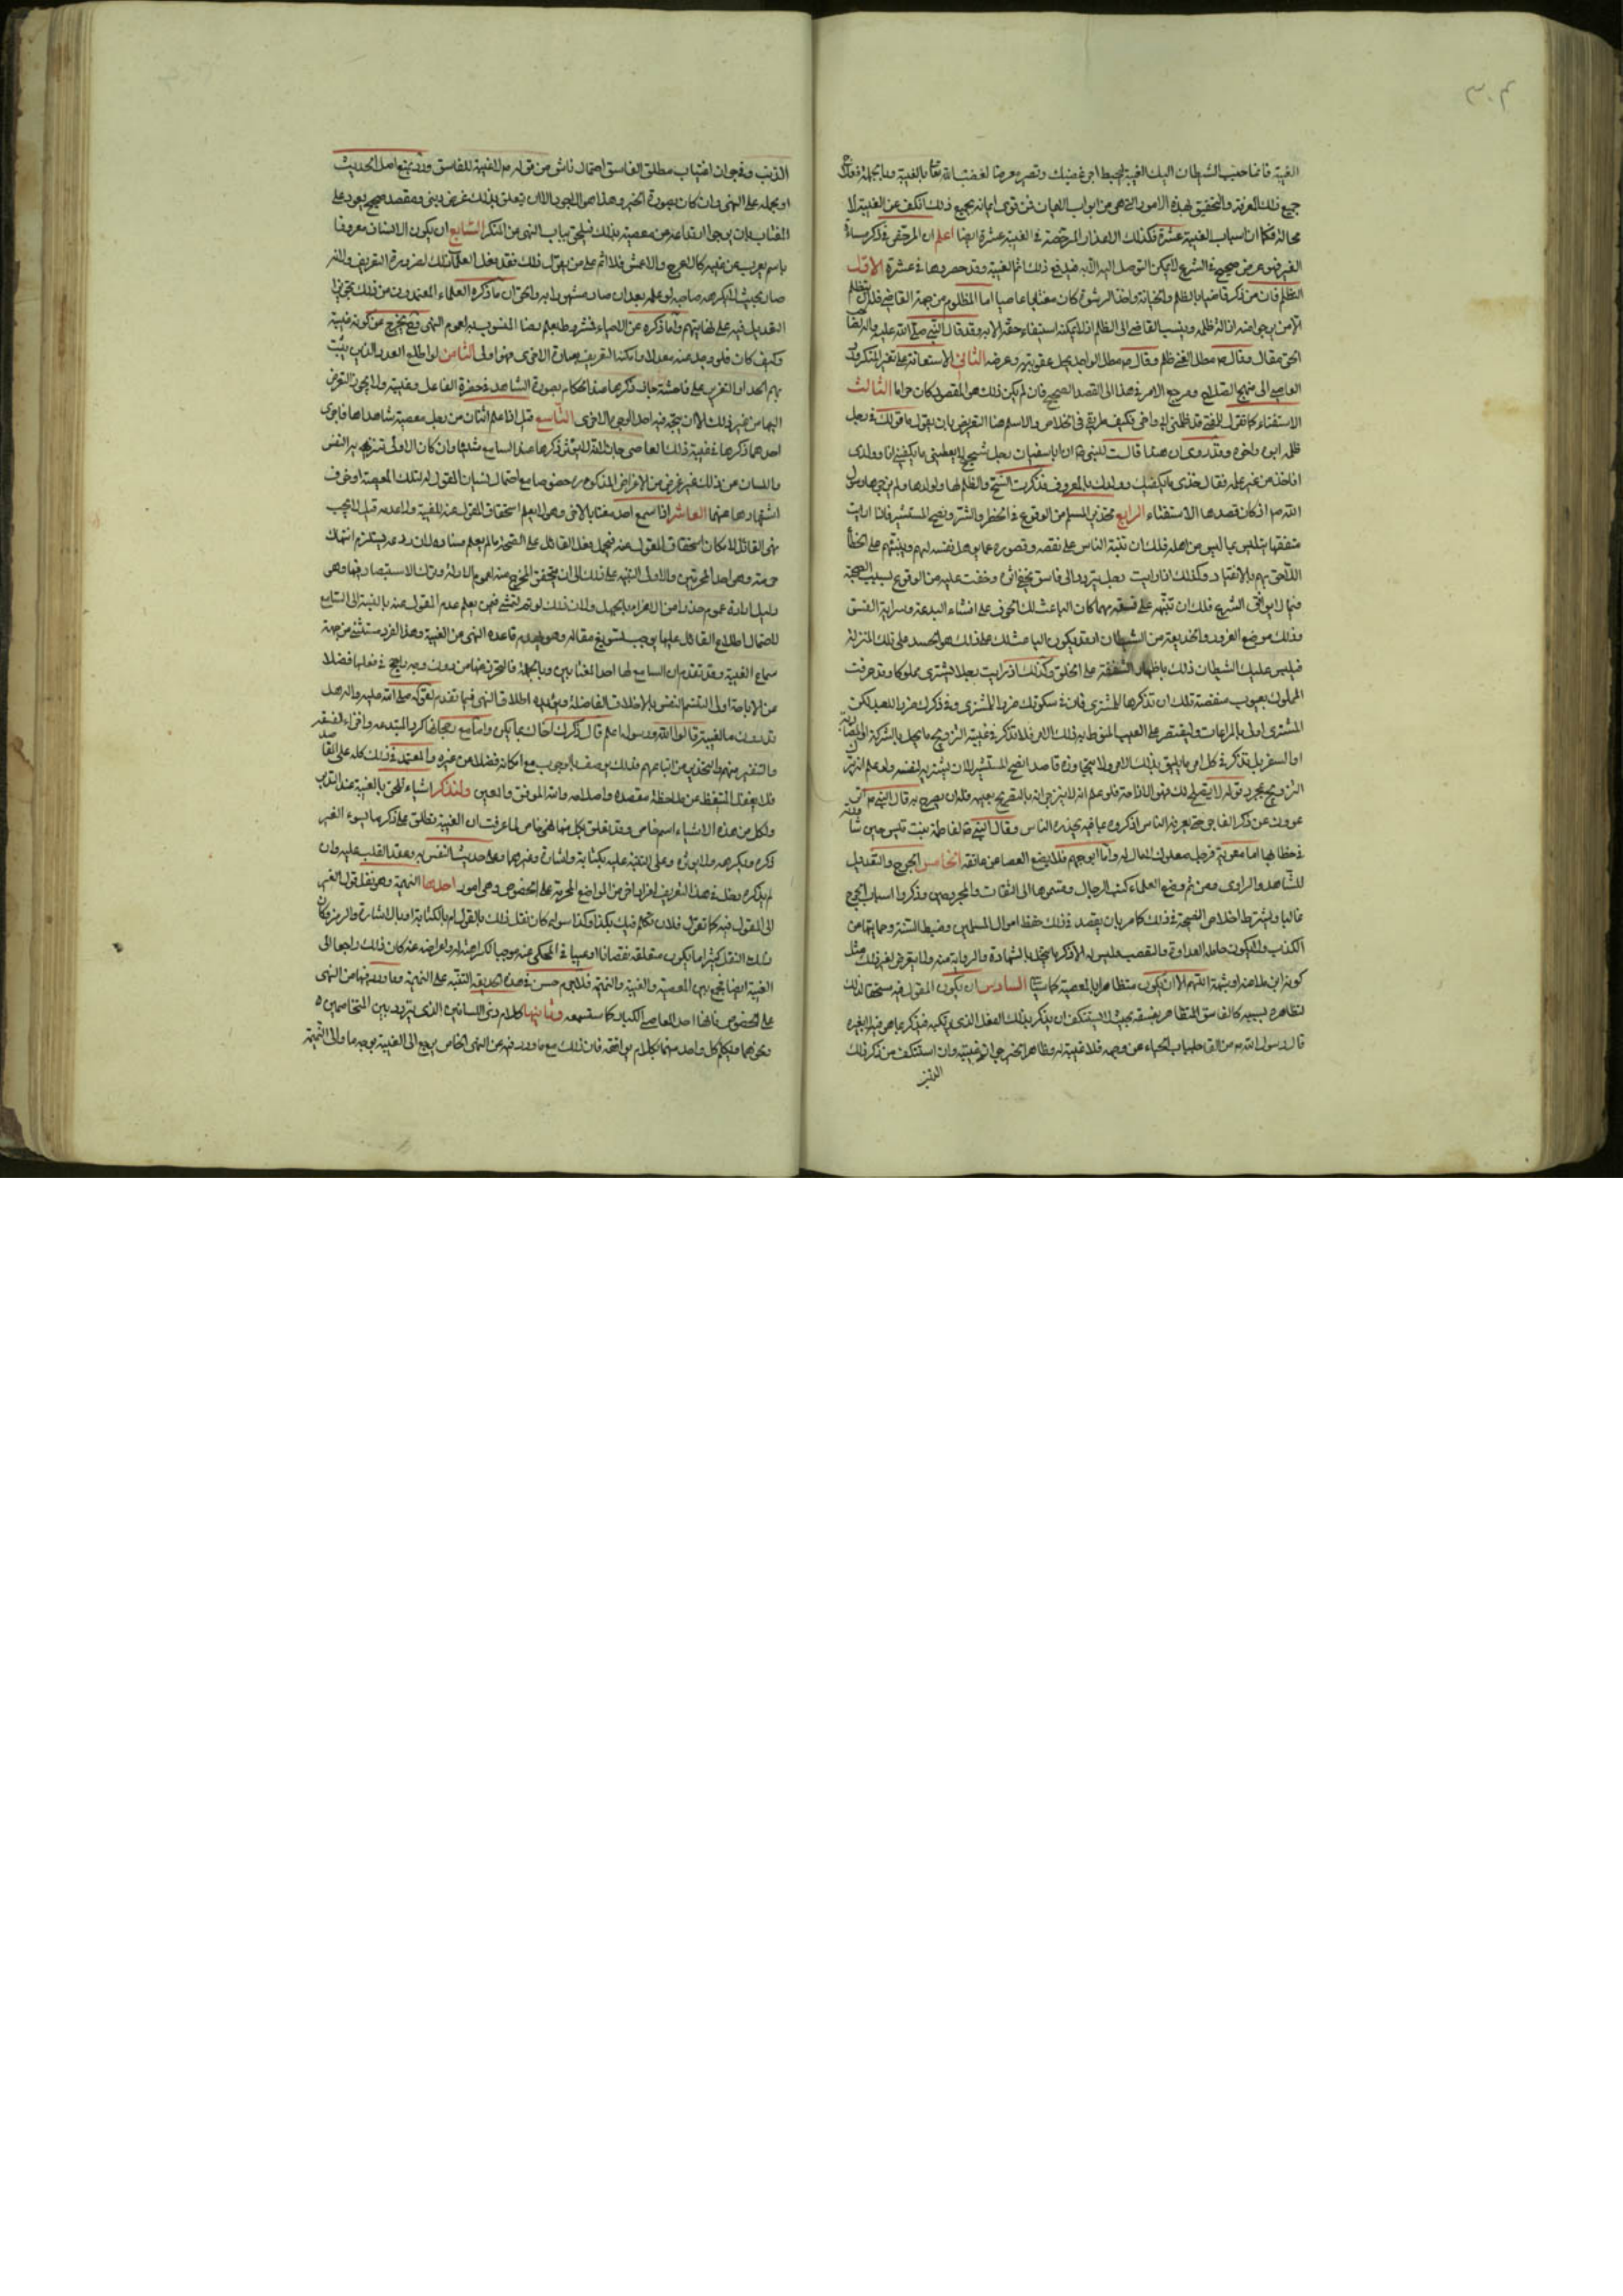 الغيبة فانما حبب الشيطان اليك الغيبة ليحبط اجر غضبك وتصير معرضا لغضب الله تعالى بالغيبة وبالجملة فعلاج
جميع ذلك المعرفة والتحقيق لهذه الامور التي هي من ابواب الايمان فمن قوى ايمانه بجميع ذلك انكف عن الغيبة لا
محالة فكما ان اسباب الغيبة عشرة فكذلك الاعذار المرخصة في الغيبة عشرة ايضا اعلم ان المرخص في ذكر مساءة
الغير هو غرض صحيح في الشرع لا يمكن التوصل اليه الا به فيدفع ذلك اثم الغيبة وقد حصروها في عشرة الاول
التظلم فان من ذكر قاضيا بالظلم والخيانة واخذ الرشوة كان مغتابا عاصيا اما المظلوم من جهة القاضي فله ان يتظلم
الى من يرجو منه ازالة ظلمه وينسب القاضي الى الظلم اذ لا يمكنه استيفاء حقه الا به وقد قال النبي صلى الله عليه واله لصاحب
الحق مقال وقال ص مطل الغني ظلم وقال ص مطل الواجد يحل عقوبته وعرضه الثاني الاستعانة على تغيير المنكر ورد
العاصي الى منهج الصلاح ومرجع الامر في هذا الى القصد الصحيح فان لم يكن ذلك هو المقصود كان حراما الثالث
الاستفتاء كما تقول للمفتي قد ظلمني ابي واخي فكيف طريقي في الخلاص والاسلم هنا التعريض بان يقول ما قولك في رجل
ظلمه ابوه واخوه وقد روي ان هندا قالت للنبي ص ان ابا سفيان رجل شحيح لا يعطيني ما يكفيني انا وولدي
افاخذ من غير علمه فقال خذي ما يكفيك وولدك بالمعروف فذكرت الشح والظلم لها ولولدها ولم يزجرها رسول
الله ص اذ كان قصدها الاستفتاء الرابع تحذير المسلم من الوقوع في الخطر والشر ونصح المستشير فاذا رايت
متفقها يتلبس بما ليس من اهله فلك ان تنبه الناس على نقصه وقصوره عما يؤهل نفسه له وتنبيههم على الخطا
اللاحق بهم بالانقياد وكذلك اذا رايت رجلا يتردد الى فاسق يخفي امره وخفت عليه من الوقوع بسبب الصحبة
فيما لا يوافق الشرع فلك ان تنبهه على فسقه مهما كان الباعث لك الخوف على افشاء البدعة وسراية الفسق
وذلك موضع الغرور والخديعة من الشيطان اذ قد يكون الباعث لك على ذلك هو الحسد على تلك المنزلة
فيلبس عليك الشيطان ذلك باظهار الشفقة على الخلق وكذلك اذا رايت رجلا يشتري مملوكا وقد عرفت
المملوك بعيوب منقصة فلك ان تذكرها للمشتري فان في سكوتك ضررا للمشتري وفي ذكرك ضررا للعبد لكن
المشتري اولى بالمراعات وليقتصر على العيب المنوط به ذلك الامر فلا تذكر في غيبة التزويج ما يخل بالشركة او المضاربة
او السفر بل تذكر في كل امر ما يليق بذلك الامر ولا تتجاوزه قاصدا نصح المستشير لا الوقيعة ولو علم انه يترك
التزويج بمجرد قوله لا يصلح لك فهو الواجب فلو علم انه لا ينزجر الا بالتصريح بعيبه فله ان يصرح به قال النبي ص ا
ترعوون عن ذكر الفاجر حتى يعرفه الناس اذكروه بما فيه يحذره الناس وقال النبي ص لفاطمة بنت قيس حين شاورته
في خطابها اما معوية فرجل صعلوك لا مال له واما ابو جهم فلا يضع العصا عن عاتقه الخامس الجرح والتعديل
للشاهد والراوي ومن ثم وضع العلماء كتب الرجال وقسموها الى الثقات والمجروحين وذكروا اسباب الجرح
غالبا ويشترط اخلاص النصيحة في ذلك كما مر بان يقصد في ذلك حفظ اموال المسلمين وضبط السنة وحمايتها من
الكذب ولا يكون حامله العداوة والتعصب وليس له الا ذكر ما يخل بالشهادة والرواية منه ولا يتعرض لغير ذلك مثل
كونه ابن ملاعنة او شبهة اللهم الا ان يكون متظاهرا بالمعصية كما سياتي السادس ان يكون المقول فيه مستحقا لذلك
لتظاهره بسببه كالفاسق المتظاهر بفسقه بحيث لا يستنكف ان يذكر بذلك الفعل الذي يرتكبه فيذكر بما هو فيه لا بغيره
قال رسول الله ص من القى جلباب الحياء عن وجهه فلا غيبة له وظاهر الخبر جواز غيبته وان استنكف من ذكر ذلك
الذنب
الذنب وفي جواز اغتياب مطلق الفاسق احتمال ناش من قوله ص لا غيبة لفاسق ورد بمنع اصل الحديث
او بحمله على النهي وان كان بصورة الخبر وهذا هو الاجود الا ان يتعلق بذلك غرض ديني ومقصد صحيح يعود على
المغتاب بان يرجو ارتداعه عن معصيته بذلك فيلحق بباب النهي عن المنكر السابع ان يكون الانسان معروفا
باسم يعرب عن عيبه كالاعرج والاعمش فلا اثم على من يقول ذلك فقد فعل العلماء ذلك لضرورة التعريف ولانه
صار بحيث لا يكرهه صاحبه لو علمه بعد ان صار مشهورا به والحق ان ما ذكره العلماء المعتمدون من ذلك يجوز
التعويل فيه على حكايتهم واما ذكره عن الاحياء فمشروط بعلم رضا المنسوب به لعموم النهي وح يخرج عن كونه غيبة
وكيف كان فلو وجد عنه معدلا وامكنه التعريف بعبارة اخرى فهو اولى الثامن لو اطلع العدد الذين يثبت
بهم الحد او التعزير على فاحشة جاز ذكرها عند الحكام بصورة الشهادة في حضرة الفاعل وغيبته ولا يجوز التعرض
اليها من غير ذلك الا ان يتجه فيه احد الوجوه الاخرى التاسع قيل اذا علم اثنان من رجل معصية شاهداها فاجرى
احدهما ذكرها في غيبة ذلك العاصي جاز لانه لا يؤثر ذكرها عند السامع شيئا وان كان الاولى تنزيه النفس
واللسان من ذلك لغير غرض من الاغراض المذكورة خصوصا مع احتمال نسيان المقول له لتلك المعصية او خوف
اشتهارها عنهما العاشر اذا سمع احد مغتابا لاخر وهو لا يعلم استحقاق المقول عنه للغيبة ولا عدمه قيل لا يجب
نهي القائل لامكان استحقاق المقول عنه فيحمل فعل القائل على الصحة ما لم يعلم فساده لان ردعه يستلزم انتهاك
حرمته وهو احد المحرمين والاولى التنبيه على ذلك الى ان يتحقق المخرج منه لعموم الادلة وترك الاستفصال فيها وهو
دليل ارادة العموم حذرا من الاغراء بالجهل ولان ذلك لو تم لتمشى فيمن يعلم عدم استحقاق المقول عنه بالنسبة الى السامع
لاحتمال اطلاع القائل على ما يوجب تسويغ مقاله وهو يهدم قاعدة النهي عن الغيبة وهذا الفرد يستثنى من جهة
سماع الغيبة وقد تقدم ان السامع لها احد المغتابين وبالجملة فالتحرز عنها من دون وجه راجح في فعلها فضلا
عن الاباحة اولى لتتسم النفس بالاخلاق الفاضلة ويؤيده اطلاق النهي فيما تقدم لقوله صلى الله عليه واله هل
تدرون ما الغيبة قالوا الله ورسوله اعلم قال ذكرك اخاك بما يكره واما مع رجحانها كرد المبتدعة واخزاء الفسقة
والتنفير منهم والتحذير من اتباعهم فذلك يوصف بالوجوب مع امكانه فضلا عن غيره والمعتمد في ذلك كله على المقاصد
فلا يغفل المتيقظ عن ملاحظة مقصده واصلاحه والله الموفق والمعين ولنذكر اشياء تلحق بالغيبة عند التدبر
ولكل من هذه الاشياء اسم خاص وقد يتعلق بكل منها نهي خاص لما عرفت ان الغيبة تطلق على ذكر ما يسوء الغير
ذكره ويكرهه ولا يؤثره وعلى التنبيه عليه بكتابة واشارة وغيرهما وعلى حديث النفس به وعقد القلب عليه وان
لم يذكره يدخل في هذا التعريف افراد اخر من المواضع المحرمة على الخصوص وهي امور احدها النميمة وهي نقل قول الغير
الى المقول فيه كما تقول فلان تكلم فيك بكذا وكذا سواء كان نقل ذلك بالقول ام بالكتابة او بالاشارة والرمز وكان
ذلك النقل كثيرا ما يكون متعلقه نقصانا او عيبا في المحكي عنه موجبا لكراهته له واعراضه عنه كان ذلك راجعا الى
الغيبة ايضا فجمع بين المعصية والغيبة والنميمة فلا جرم حسن في هذه الحديقة التنبيه على النميمة وما ورد فيها من النهي
على الخصوص فانها احدى المعاصي الكبار كما ستسمعه وثانيها كلام ذي اللسانين الذي يتردد بين المتخاصمين
ونحوهما ويكلم كل واحد منهما بكلام يوافقه فان ذلك مع ما ورد فيه عن النهي الخاص يرجع الى الغيبة بوجه ما والى النميمة